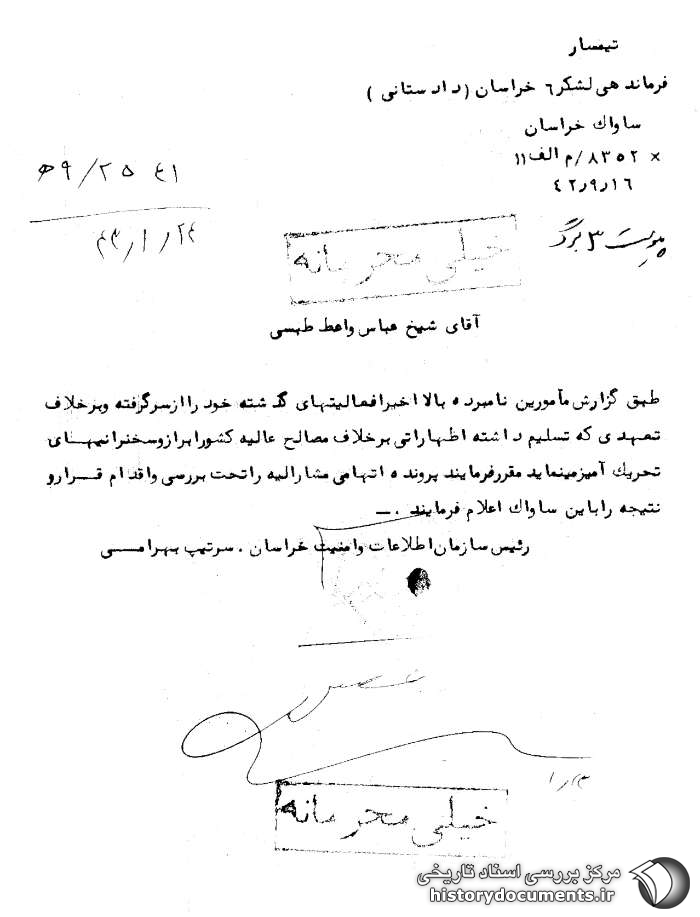 تیمسار
فرماندهی لشگر ٦ خراسان (دادستانی)
ساواك خراسان
× ٨٣٥٢/م الف ١١
٤٢ر٩ر١٦
پیوست ٣ برگ
٤١ ٢٥/٩ﻫ
٤٣ر١ر٢٤
خیلی محرمانه
آقای شیخ عباس واعظ طبسی
طبق گزارش مأمورین نامبرده بالا اخیرا فعالیتهای گذشته خود را از سر گرفته و بر خلاف
تعهدی که تسلیم داشته اظهاراتی بر خلاف مصالح عالیه کشور ابراز و سخنرانیهای
تحریك آمیز مینماید مقرر فرمایند پرونده اتهامی مشارالیه را تحت بررسی و اقدام قرار و
نتیجه را باین ساواك اعلام فرمایند .ــ
رئیس سازمان اطلاعات و امنیت خراسان . سرتیپ بهرامی
خیلی محرمانه
مرکز بررسی اسناد تاریخی
historydocuments.ir